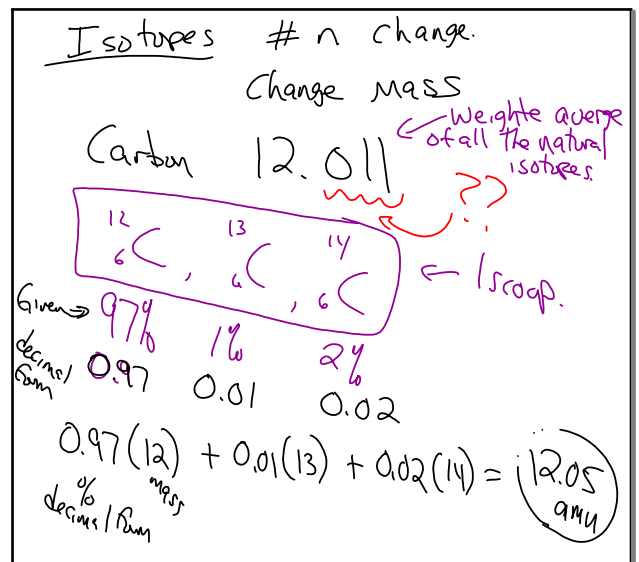 Isotopes # n change.
Change Mass
Carbon 12.011
Weighte averge
of all the natural
isotopes.
??
12 6 C, 13 6 C, 14 6 C
1 scoop.
Given ⇒ 97% 1% 2%
decimal
form 0.97 0.01 0.02
0.97(12) + 0.01(13) + 0.02(14) = 12.05
amu
% mass
decimal form